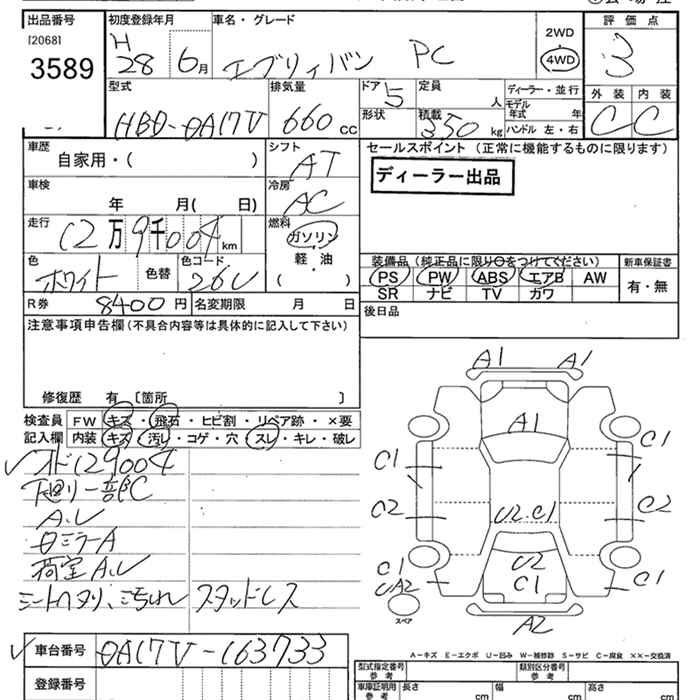 出品番号 初度登録年月 車名・グレード 2WD 評価点
[2068] H
3589 28 6月 エブリィバン PC 4WD 3
型式 排気量 ドア 定員 ディーラー・並行 外装 内装
HBD-DA17V 660 CC 5 人 モデル年式 年 C C
形状 積載 350 kg ハンドル 左・右
車歴 シフト セールスポイント (正常に機能するものに限ります)
自家用・( ) AT ディーラー出品
車検 冷房
年 月( 日) AC
走行 燃料
12万9千004km ガソリン
色 色コード 軽油 装備品(純正品に限り○をつけてください) 新車保証書
ホワイト 色替 26U ( ・ ) PS PW ABS エアB AW 有・無
R券 8400円 名変期限 月 日 SR ナビ TV カワ
注意事項申告欄(不具合内容等は具体的に記入して下さい) 後日品
修復歴 有 [箇所 ]
検査員 FW キズ・飛石・ヒビ割・リペア跡・×要
記入欄 内装 キズ・汚レ・コゲ・穴・スレ・キレ・破レ
オド129004
下廻り一部C
A.U
ミラーA
荷室A.U
シートヘタリ、汚れ スタッドレス
A1 A1
A1
C1 C1
C2 U2.C1 C2
C1 U2 C1
UA2 C1
スペア A2
A-キズ E-エクボ U-凹み W-補修跡 S-サビ C-腐食 ××-交換済
車台番号 DA17V-163733
型式指定番号 参考 類別区分番号 参考
登録番号
車庫証明用 参考 長さ cm 幅 cm 高さ cm